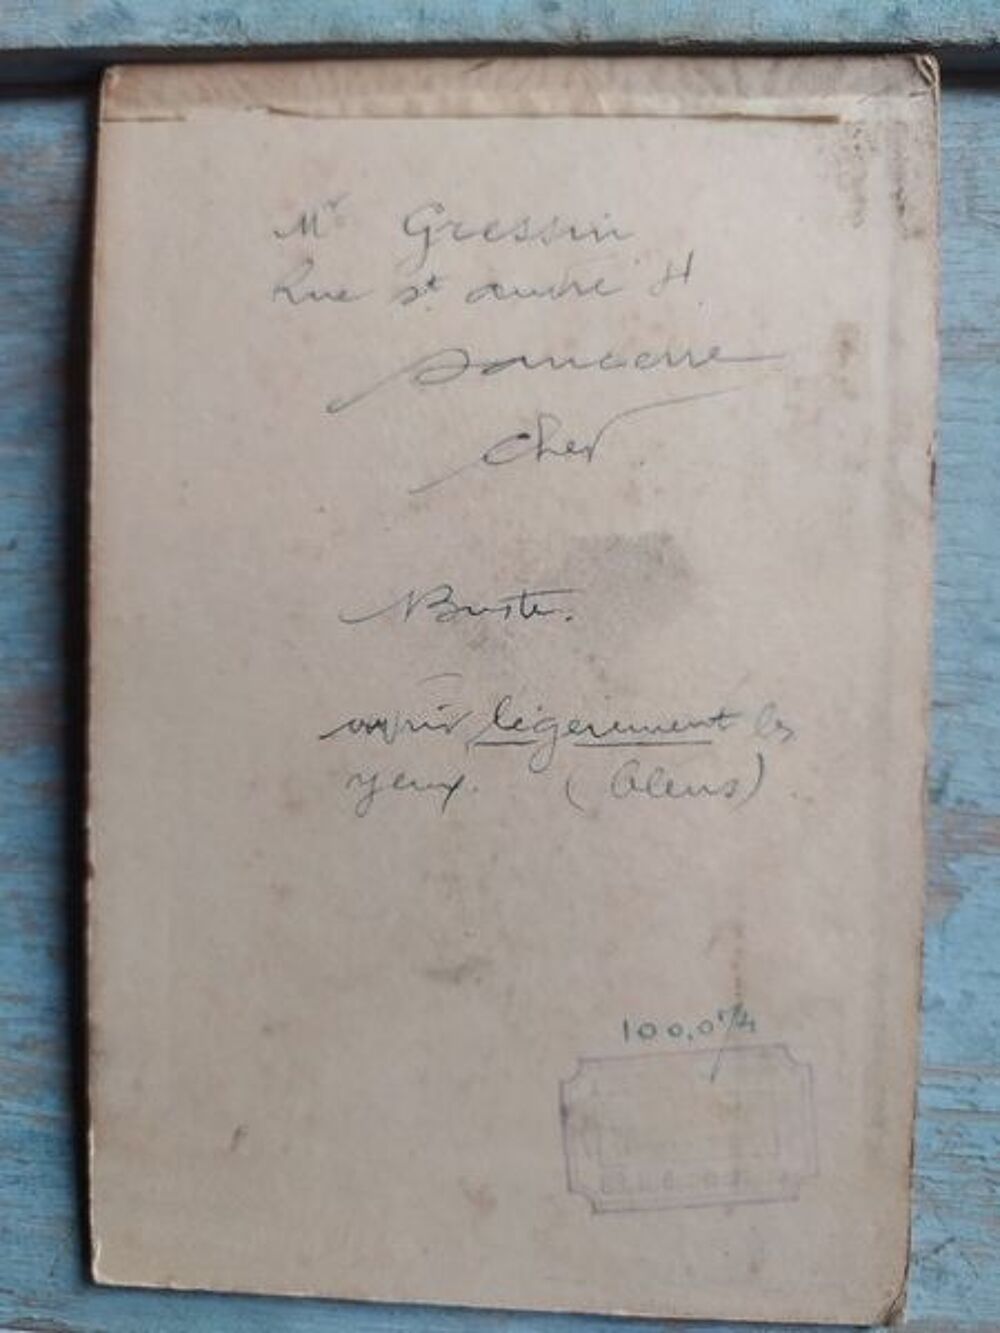 Mr Gressin
Rue St André 4
Sancerre
Cher
Buste.
ouvrir légèrement les
yeux. (bleus)